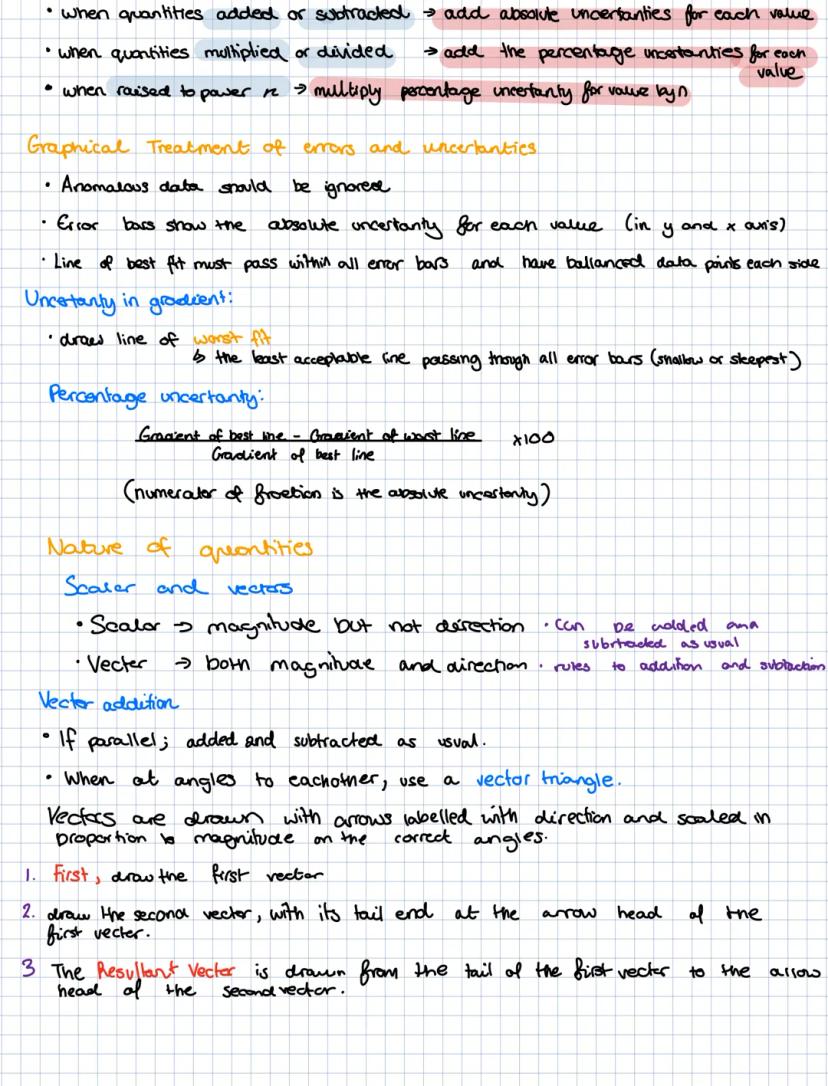 • when quantities added or subtracted → add absolute uncertanties for each value
• when quantities multiplied or divided → add the percentage uncertanties for each value
• when raised to power n → multiply percentage uncertanty for value by n
Graphical Treatment of errors and uncertanties
• Anomalous data should be ignored
• Error bars show the absolute uncertanty for each value (in y and x axis)
• Line of best fit must pass within all error bars and have ballanced data points each side
Uncertanty in gradient:
• draw line of worst fit
↳ the least acceptable line passing though all error bars (shallow or steepest)
Percentage uncertanty:
Gradient of best line - Gradient of worst line
Gradient of best line
×100
(numerator of fraction is the absolute uncertanty)
Nature of quantities
Scalar and vectors
• Scalar → magnitude but not direction • can be added and
subrtracted as usual
• Vector → both magnitude and direction • rules to addition and subtraction
Vector addition
• If parallel; added and subtracted as usual.
• When at angles to eachother, use a vector triangle.
Vectors are drawn with arrows labelled with direction and scaled in
proportion to magnitude on the correct angles.
1. First, draw the first vector
2. draw the second vector, with its tail end at the arrow head of the
first vector.
3 The Resultant Vector is drawn from the tail of the first vector to the arrow
head of the second vector.